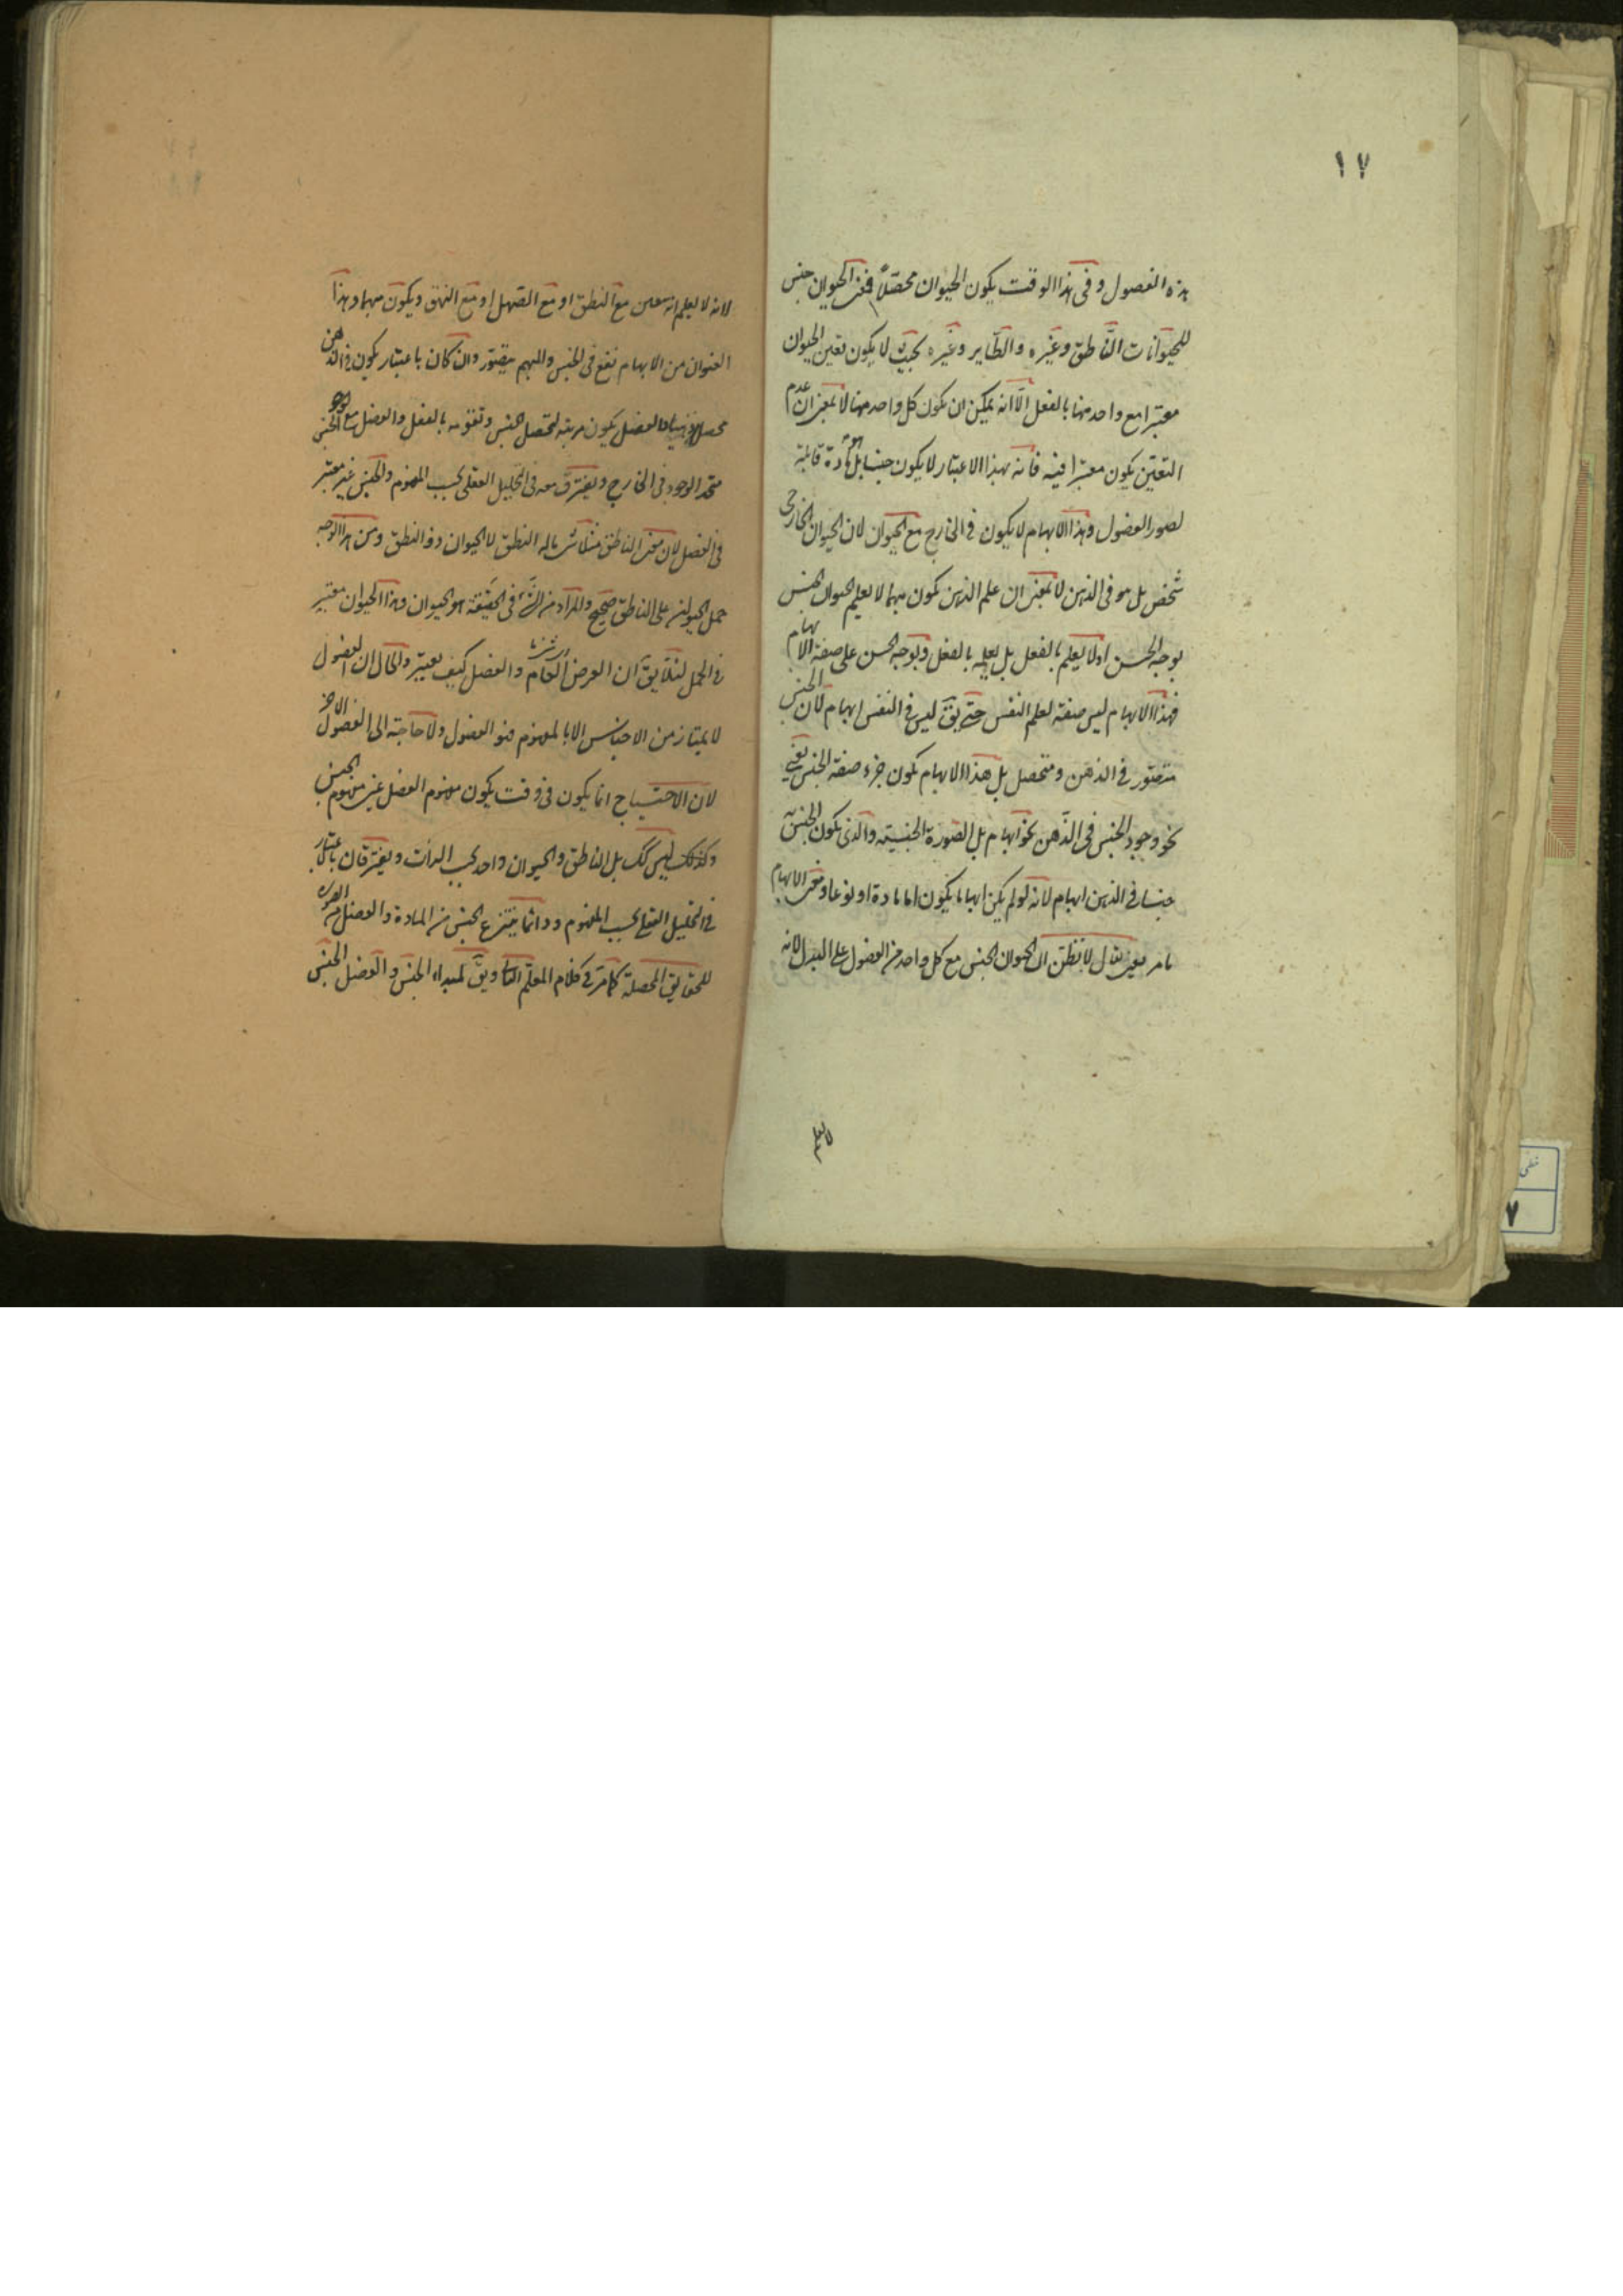 ١٧
هذه الفصول و فى هذا الوقت يكون الحيوان محصّلاً فمعنى الحيوان جنس
للحيوانات الناطق وغيره والطاير وغيره بحيث لا يكون تعين الحيوان
معتبرا مع واحد منها بالفعل الّا انه يمكن ان يكون كل واحد منها لا بمعنى ان عدم
التعيّن يكون معتبرا فيه فانه بهذا الاعتبار لا يكون جنسا بل هو مادة قابلة
لصور الفصول وهذا الابهام لا يكون فى الخارج مع الحيوان لان الحيوان الخارجى
شخص بل هو فى الذهن لا بمعنى ان علم الذهن يكون مبهما لا يعلم الحيوان الجنس
بوجه الحسن اولا يعلم بالفعل بل يعلمه بالفعل وبوجه الحسن على صفة الابهام
فهذا الابهام ليس صفة لعلم النفس حتى يقّ ليس فى النفس ابهام لان الجنس
متصّور فى الذهن ومتحصل بل هذا الابهام يكون جزء صفة الجنس يعنى
نحو وجود الجنس فى الذّهن نحو ابهام بل الصورة الجنسيته والذى يكون الجنس
جنسا فى الذهن ابهام لانه لو لم يكن ابهاما يكون اما مادة او نوعا ومعنى الابهام
لا تظن ان الحيوان الجنس مع كل واحد من الفصول على البدل لانه
لا يعلم
لانه لا يعلم انه معين مع النطق او مع الصهل او مع النهق ويكون مبهما وهذا
العنوان من الابهام نفع فى الجنس والمبهم يتصور وان كان باعتبار يكون فى الذهن
والفصل يكون مرتبه لتحصل الجنس وتقومه بالفعل والفصل مع الجنس
متحد الوجود فى الخارج ويفترق معه فى التحليل العقلى بحسب المفهوم والجنس غير معتبر
فى الفصل لان معنى الناطق مثلا شئ ماله النطق لا الحيوان ذو النطق ومن هذا الوجه
حمل الحيوان على الناطق صحيح والمراد من الشئ فى الحقيقة هو الحيوان وهذا الحيوان معتبر
فى الحمل لئلا يقّ ان العرض العام والفصل كيف يعتبر والحال ان الفصول
لا يمتاز من الاجناس الا بالمفهوم فنو الفصول ولا حاجة الى الفصول الاخر
لان الاحتياج انما يكون فى وقت يكون مفهوم الفصل غير مفهوم الجنس
وكذلك ليس كك بل الناطق والحيوان واحد بحسب الذات ويفترقان باعتبار
فى التحليل العقلى بحسب المفهوم ودائما ينتزع الجنس من المادة والفصل من الصورة
للحقايق المحصلة كما مرّ فى كلام المعلّم الثا ويقّ لمبداء الجنس والفصل الجنس